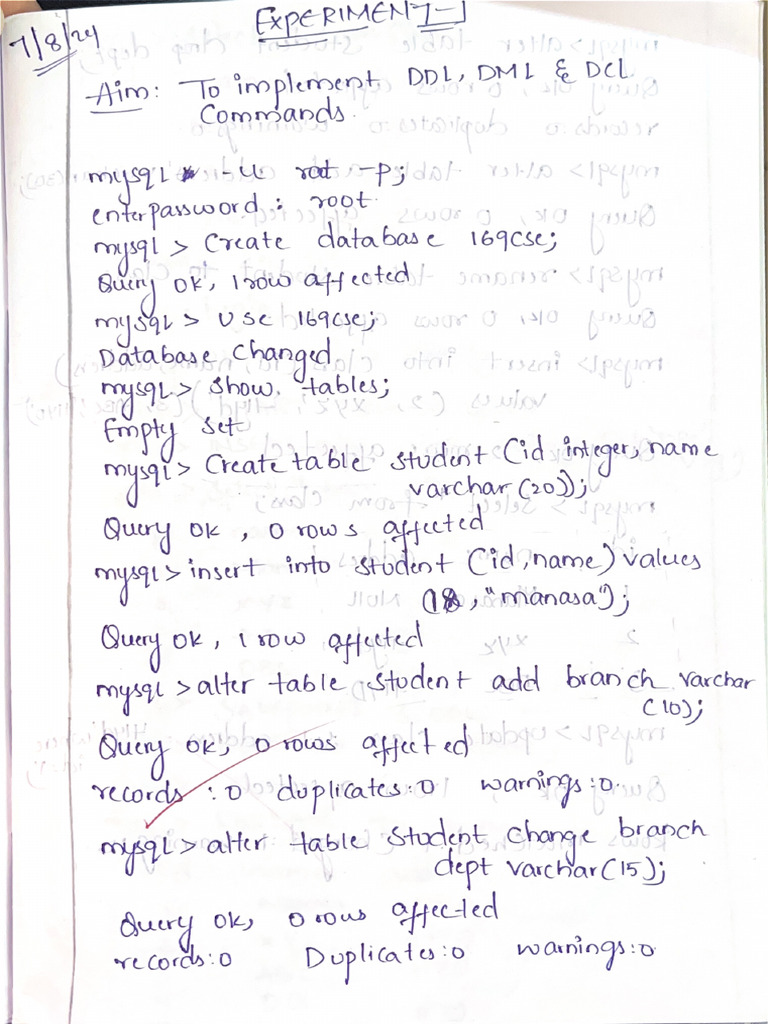 EXPERIMENT-1
7/8/24
Aim: To implement DDL, DML & DCL
Commands.
mysql -u root -p;
enter password : root
mysql > Create database 169cse;
Query ok, 1 row affected
mysql > Use 169cse;
Database Changed
mysql > show tables;
Empty set
mysql > Create table student (id integer, name
varchar(20));
Query ok , 0 rows affected
mysql > insert into student (id,name) values
(1, "manasa");
Query ok, 1 row affected
mysql > alter table student add branch varchar
(10);
Query ok, 0 rows affected
records : 0 duplicates : 0 warnings : 0.
mysql > alter table student change branch
dept varchar(15);
Query ok, 0 rows affected
records : 0 Duplicates : 0 warnings : 0